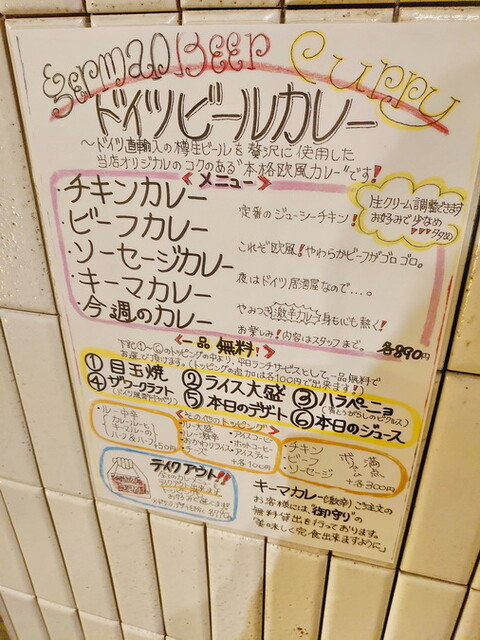 German Beer Curry
ドイツビールカレー
～ドイツ直輸入の樽生ビールを贅沢に使用した
当店オリジナルのコクのある"本格欧風カレー"です!
<メニュー>
チキンカレー 定番のジューシーチキン!
ビーフカレー これぞ欧風!やわらかビーフがゴロゴロ。
ソーセージカレー 夜はドイツ居酒屋なので…。
キーマカレー やみつき激辛カレー身も心も熱く!
今週のカレー お楽しみ!内容はスタッフまで。
各890円
生クリーム調整できます
お好みで少なめ
<一品 無料!>
下記①〜⑥のトッピングの中より、平日ランチサービスとして、一品無料で
お選び頂けます。(トッピングの追加は各100円で出来ます!)
①目玉焼 ②ライス大盛 ③ハラペーニョ
(青とうがらしのピクルス)
④ザワークラフト ⑤本日のデザート ⑥本日のジュース
<その他のトッピング>
・ルー中辛
カレールーと
キーマルーの
ハーフ&ハーフ
50円
・ルー大盛
・ルー激辛
・おかわりライス
・チーズ
・アイスコーヒー
・ホットコーヒー
・アイスティー
各100円
チキン
ビーフ
ソーセージ
各300円
テイクアウト!!
キーマカレー(激辛)ご注文の
お客様には、"御守り"の
無料貸出を行っております。
"美味しく完食出来ますように"